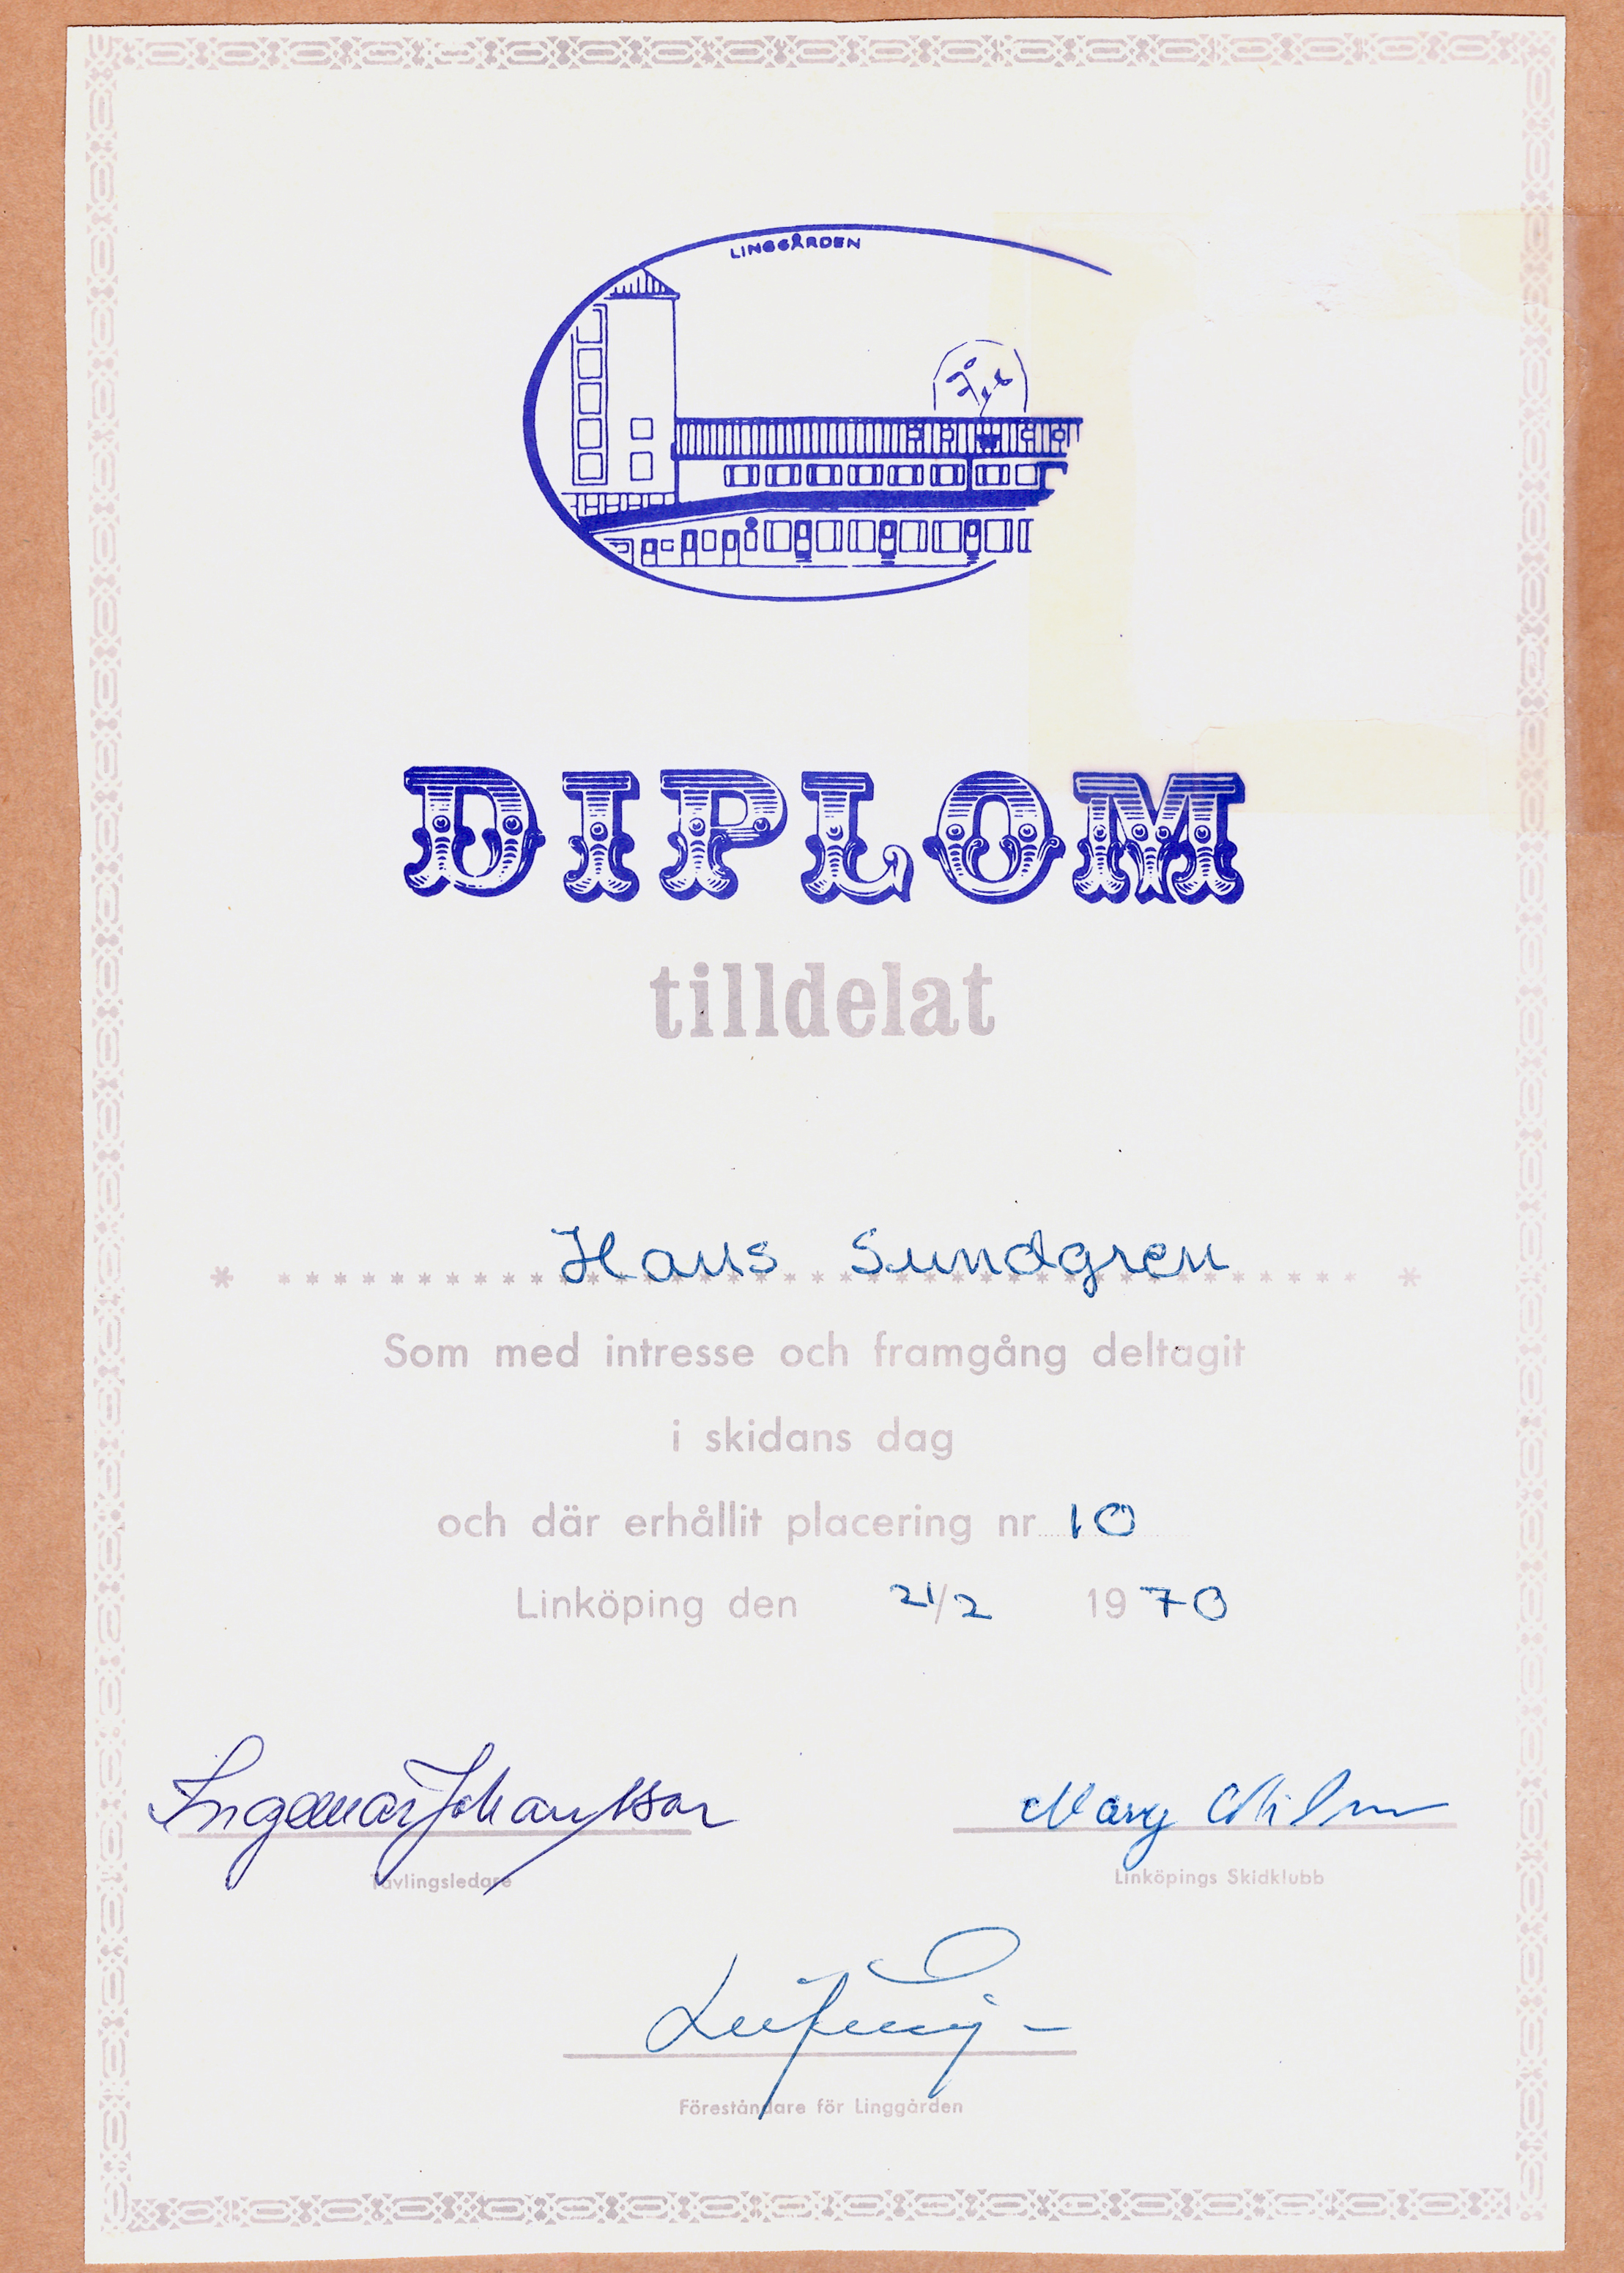 LINGGÅRDEN
DIPLOM
tilldelat
Hans Sundgren
Som med intresse och framgång deltagit
i skidans dag
och där erhållit placering nr 10
Linköping den 21/2 1970
Ingemar Johansson
Tävlingsledare
Linköpings Skidklubb
Föreståndare för Linggården